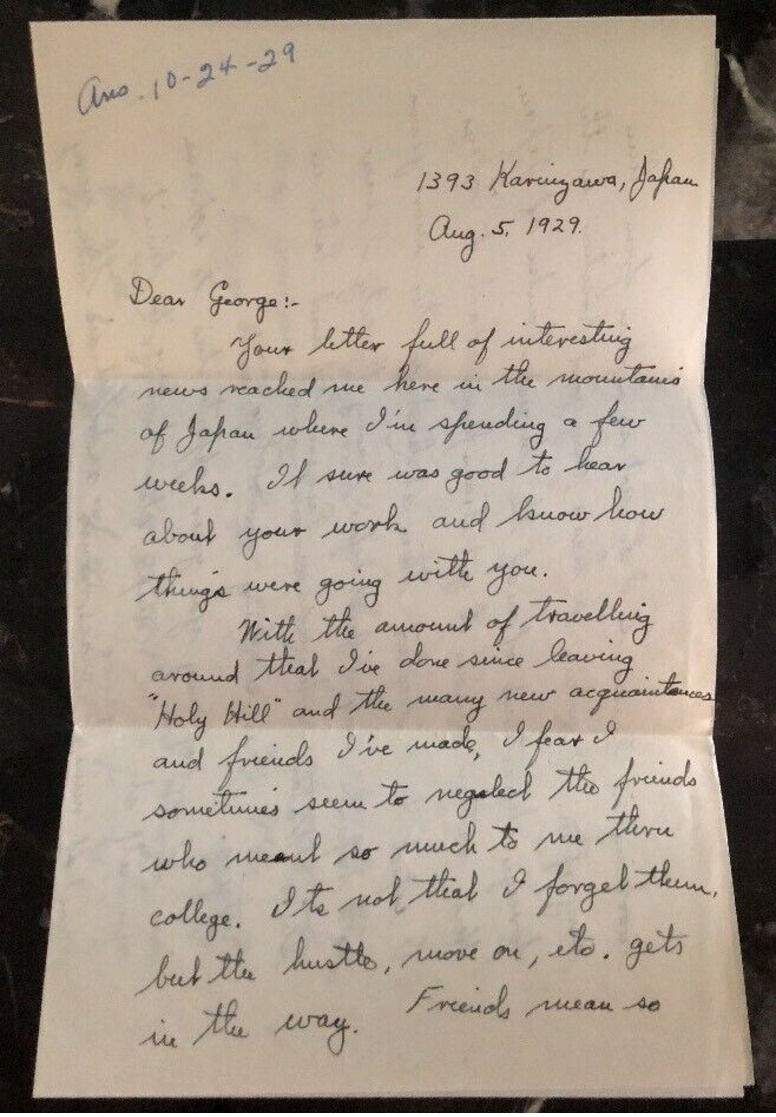 Ans. 10-24-29
1393 Karuizawa, Japan
Aug. 5, 1929.
Dear George:-
Your letter full of interesting
news reached me here in the mountains
of Japan where I'm spending a few
weeks. It sure was good to hear
about your work and know how
things were going with you.
With the amount of travelling
around that I've done since leaving
"Holy Hill" and the many new acquaintances
and friends I've made, I fear I
sometimes seem to neglect the friends
who meant so much to me thru
college. Its not that I forget them,
but the hustle, move on, etc. gets
in the way. Friends mean so